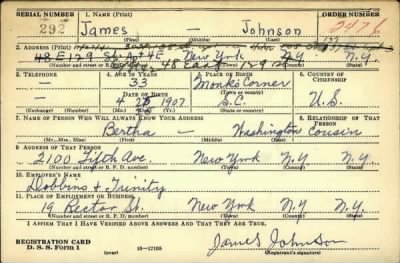 SERIAL NUMBER 1. NAME (Print) ORDER NUMBER
292 James — Johnson 2476
(First) (Middle) (Last)
2. ADDRESS (Print)
48 E 129 St Apt 4E New York N.Y. N.Y.
48 East 129 St
(Number and street or R. F. D. number) (Town) (County) (State)
3. TELEPHONE 4. AGE IN YEARS 5. PLACE OF BIRTH 6. COUNTRY OF CITIZENSHIP
— 33 Monks Corner
DATE OF BIRTH (Town or county)
— 4 25 1907 S.C. U.S.
(Exchange) (Number) (Mo.) (Day) (Yr.) (State or country)
7. NAME OF PERSON WHO WILL ALWAYS KNOW YOUR ADDRESS 8. RELATIONSHIP OF THAT PERSON
Bertha — Washington Cousin
(Mr., Mrs., Miss) (First) (Middle) (Last)
9. ADDRESS OF THAT PERSON
2100 Fifth Ave. New York N.Y. N.Y.
(Number and street or R. F. D. number) (Town) (County) (State)
10. EMPLOYER'S NAME
Dobbins & Trinity
11. PLACE OF EMPLOYMENT OR BUSINESS
19 Rector St. New York N.Y. N.Y.
(Number and street or R. F. D. number) (Town) (County) (State)
I AFFIRM THAT I HAVE VERIFIED ABOVE ANSWERS AND THAT THEY ARE TRUE.
REGISTRATION CARD James Johnson
D. S. S. Form 1 (over) 16—17105 (Registrant's signature)